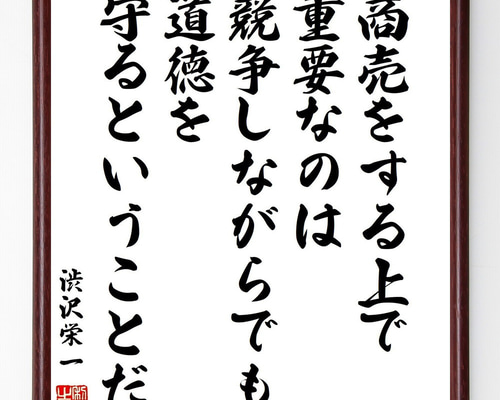 商売をする上で
重要なのは
競争しながらでも
道徳を
守るということだ
渋沢栄一